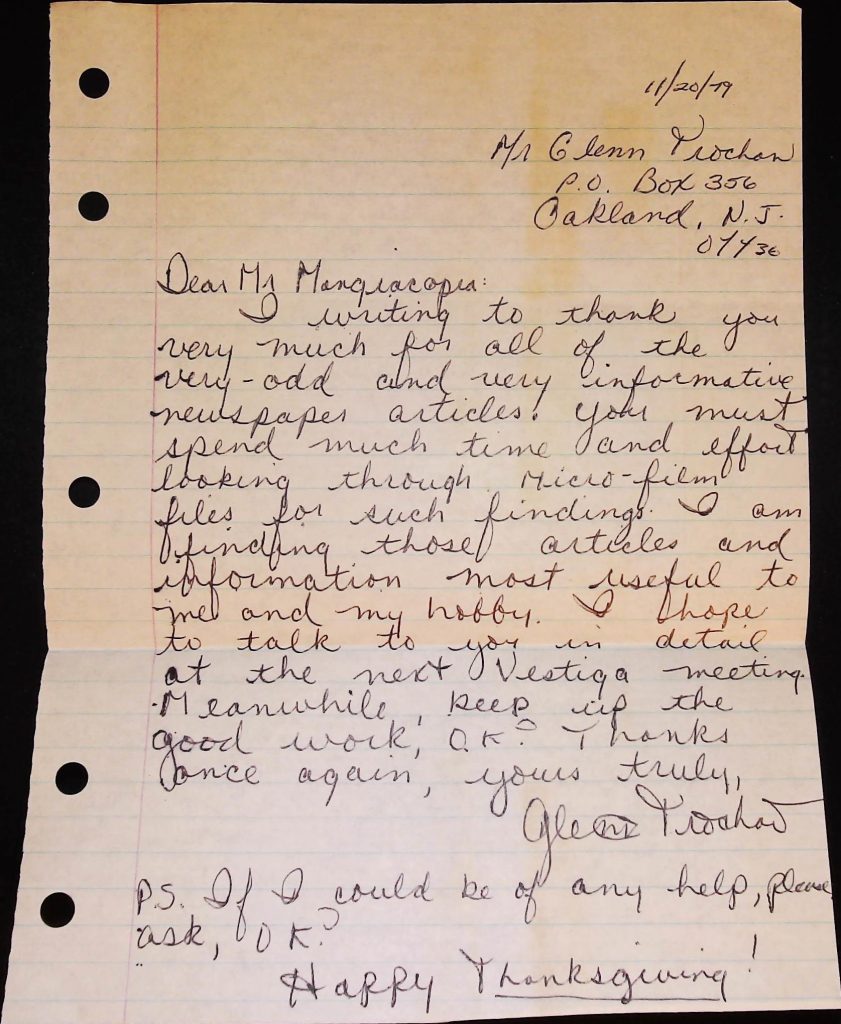 11/20/79
Mr Glenn Trochan
P.O. Box 356
Oakland, N.J.
07436
Dear Mr Mangiacopra:
I writing to thank you
very much for all of the
very-odd and very informative
newspaper articles. You must
spend much time and effort
looking through micro-film
files for such findings. I am
finding those articles and
information most useful to
me and my hobby. I hope
to talk to you in detail
at the next Vestiga meeting.
Meanwhile, keep up the
good work, O.K? Thanks
once again, yours truly,
Glenn Trochan
P.S. If I could be of any help, please
ask, OK?
Happy Thanksgiving!